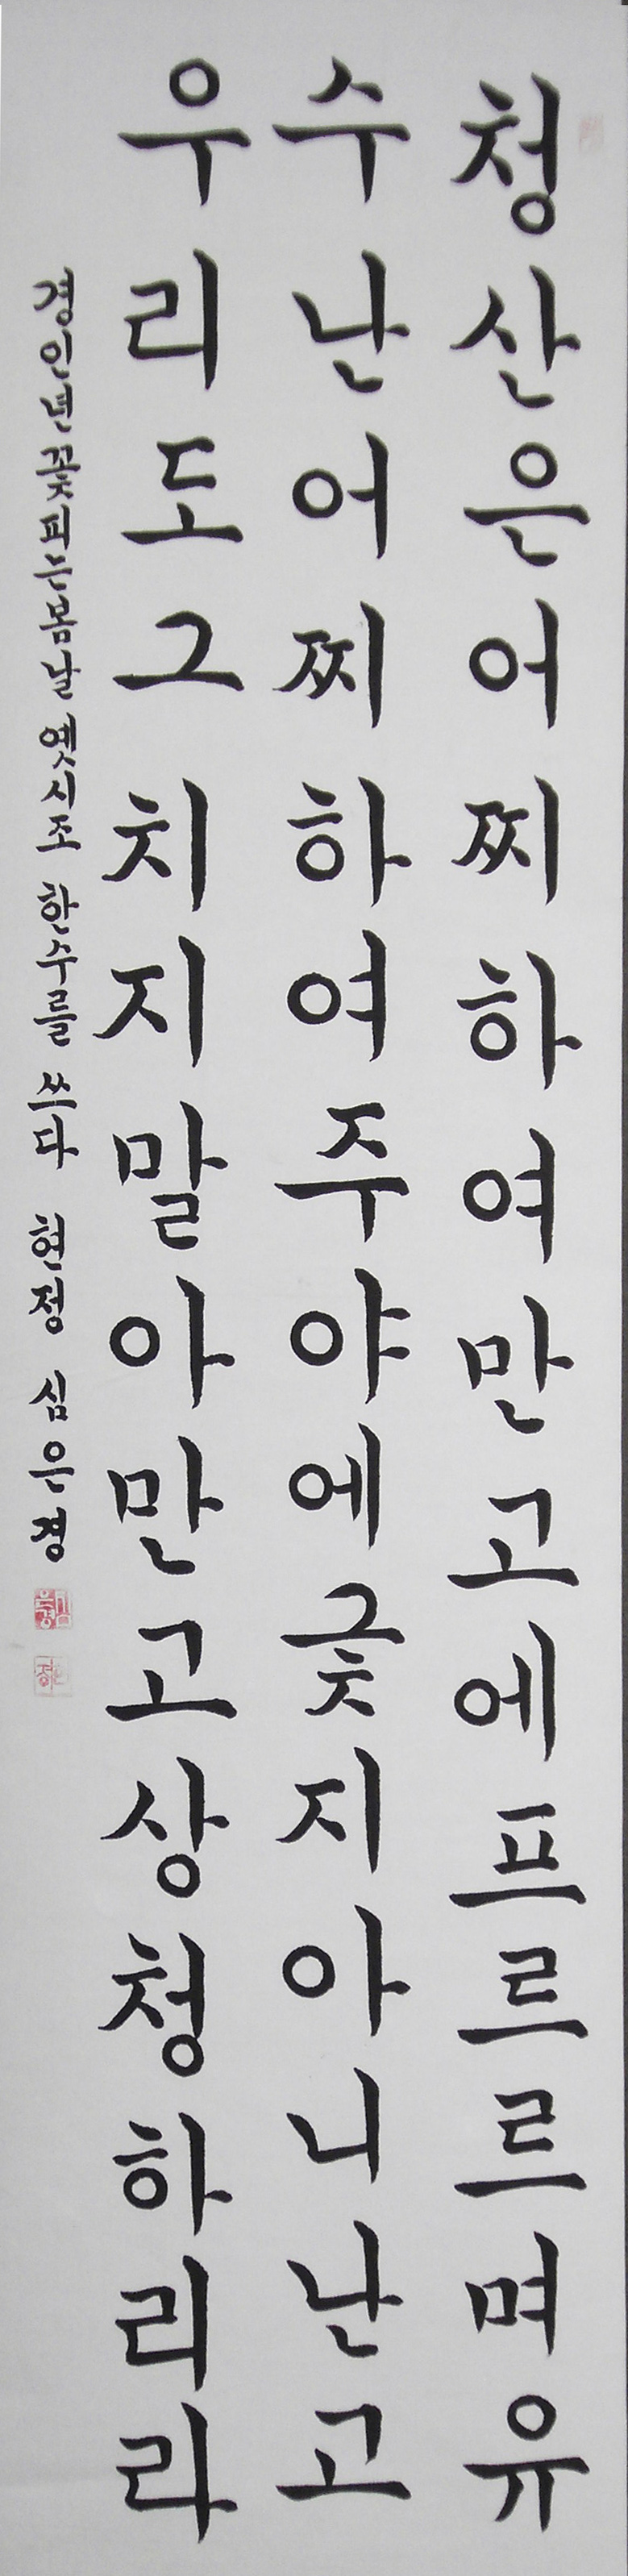 청산은어찌하여만고에프르르며유
수난어찌하여주야에긋지아니난고
우리도그치지말아만고상청하리라
경인년꽃피는봄날 옛시조 한수를 쓰다 현정 심은경